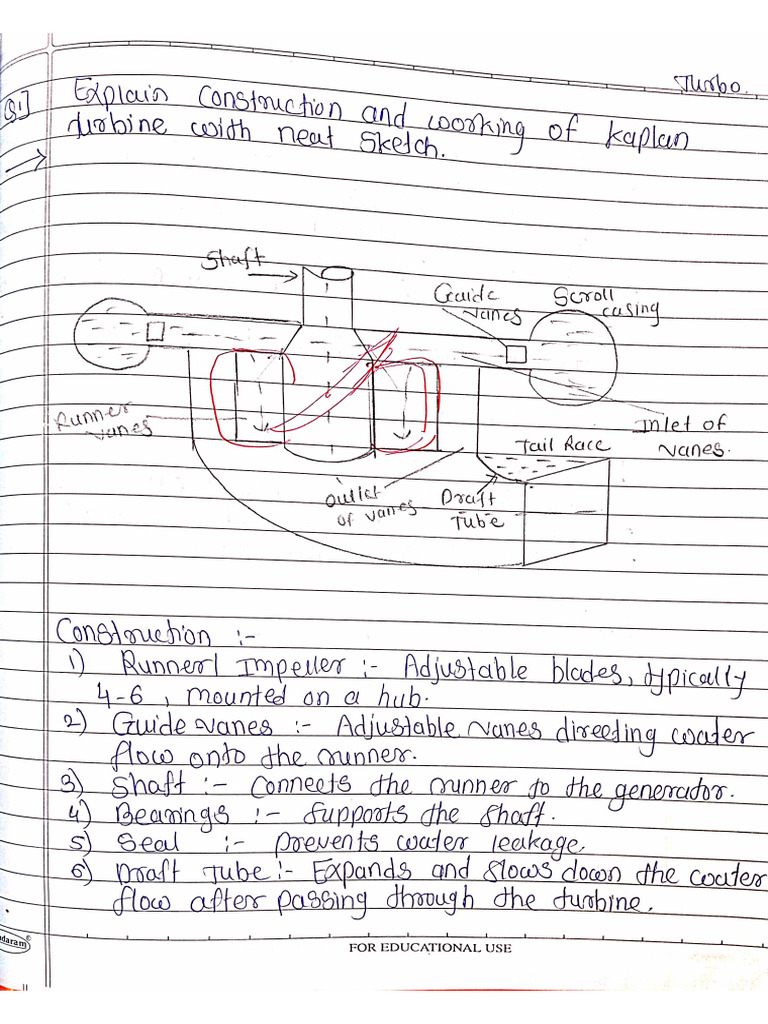 Turbo.
Q1] Explain construction and working of Kaplan
turbine with neat sketch.
Shaft
Guide
vanes
Scroll
casing
Runner
vanes
Inlet of
vanes.
Tail Race
Outlet
of vanes
Draft
Tube
Construction :-
1) Runner/ Impeller :- Adjustable blades, typically
4-6, mounted on a hub.
2) Guide vanes :- Adjustable vanes directing water
flow onto the runner.
3) Shaft :- Connects the runner to the generator.
4) Bearings :- Supports the shaft.
5) Seal :- prevents water leakage.
6) Draft Tube :- Expands and slows down the water
flow after passing through the turbine.
FOR EDUCATIONAL USE